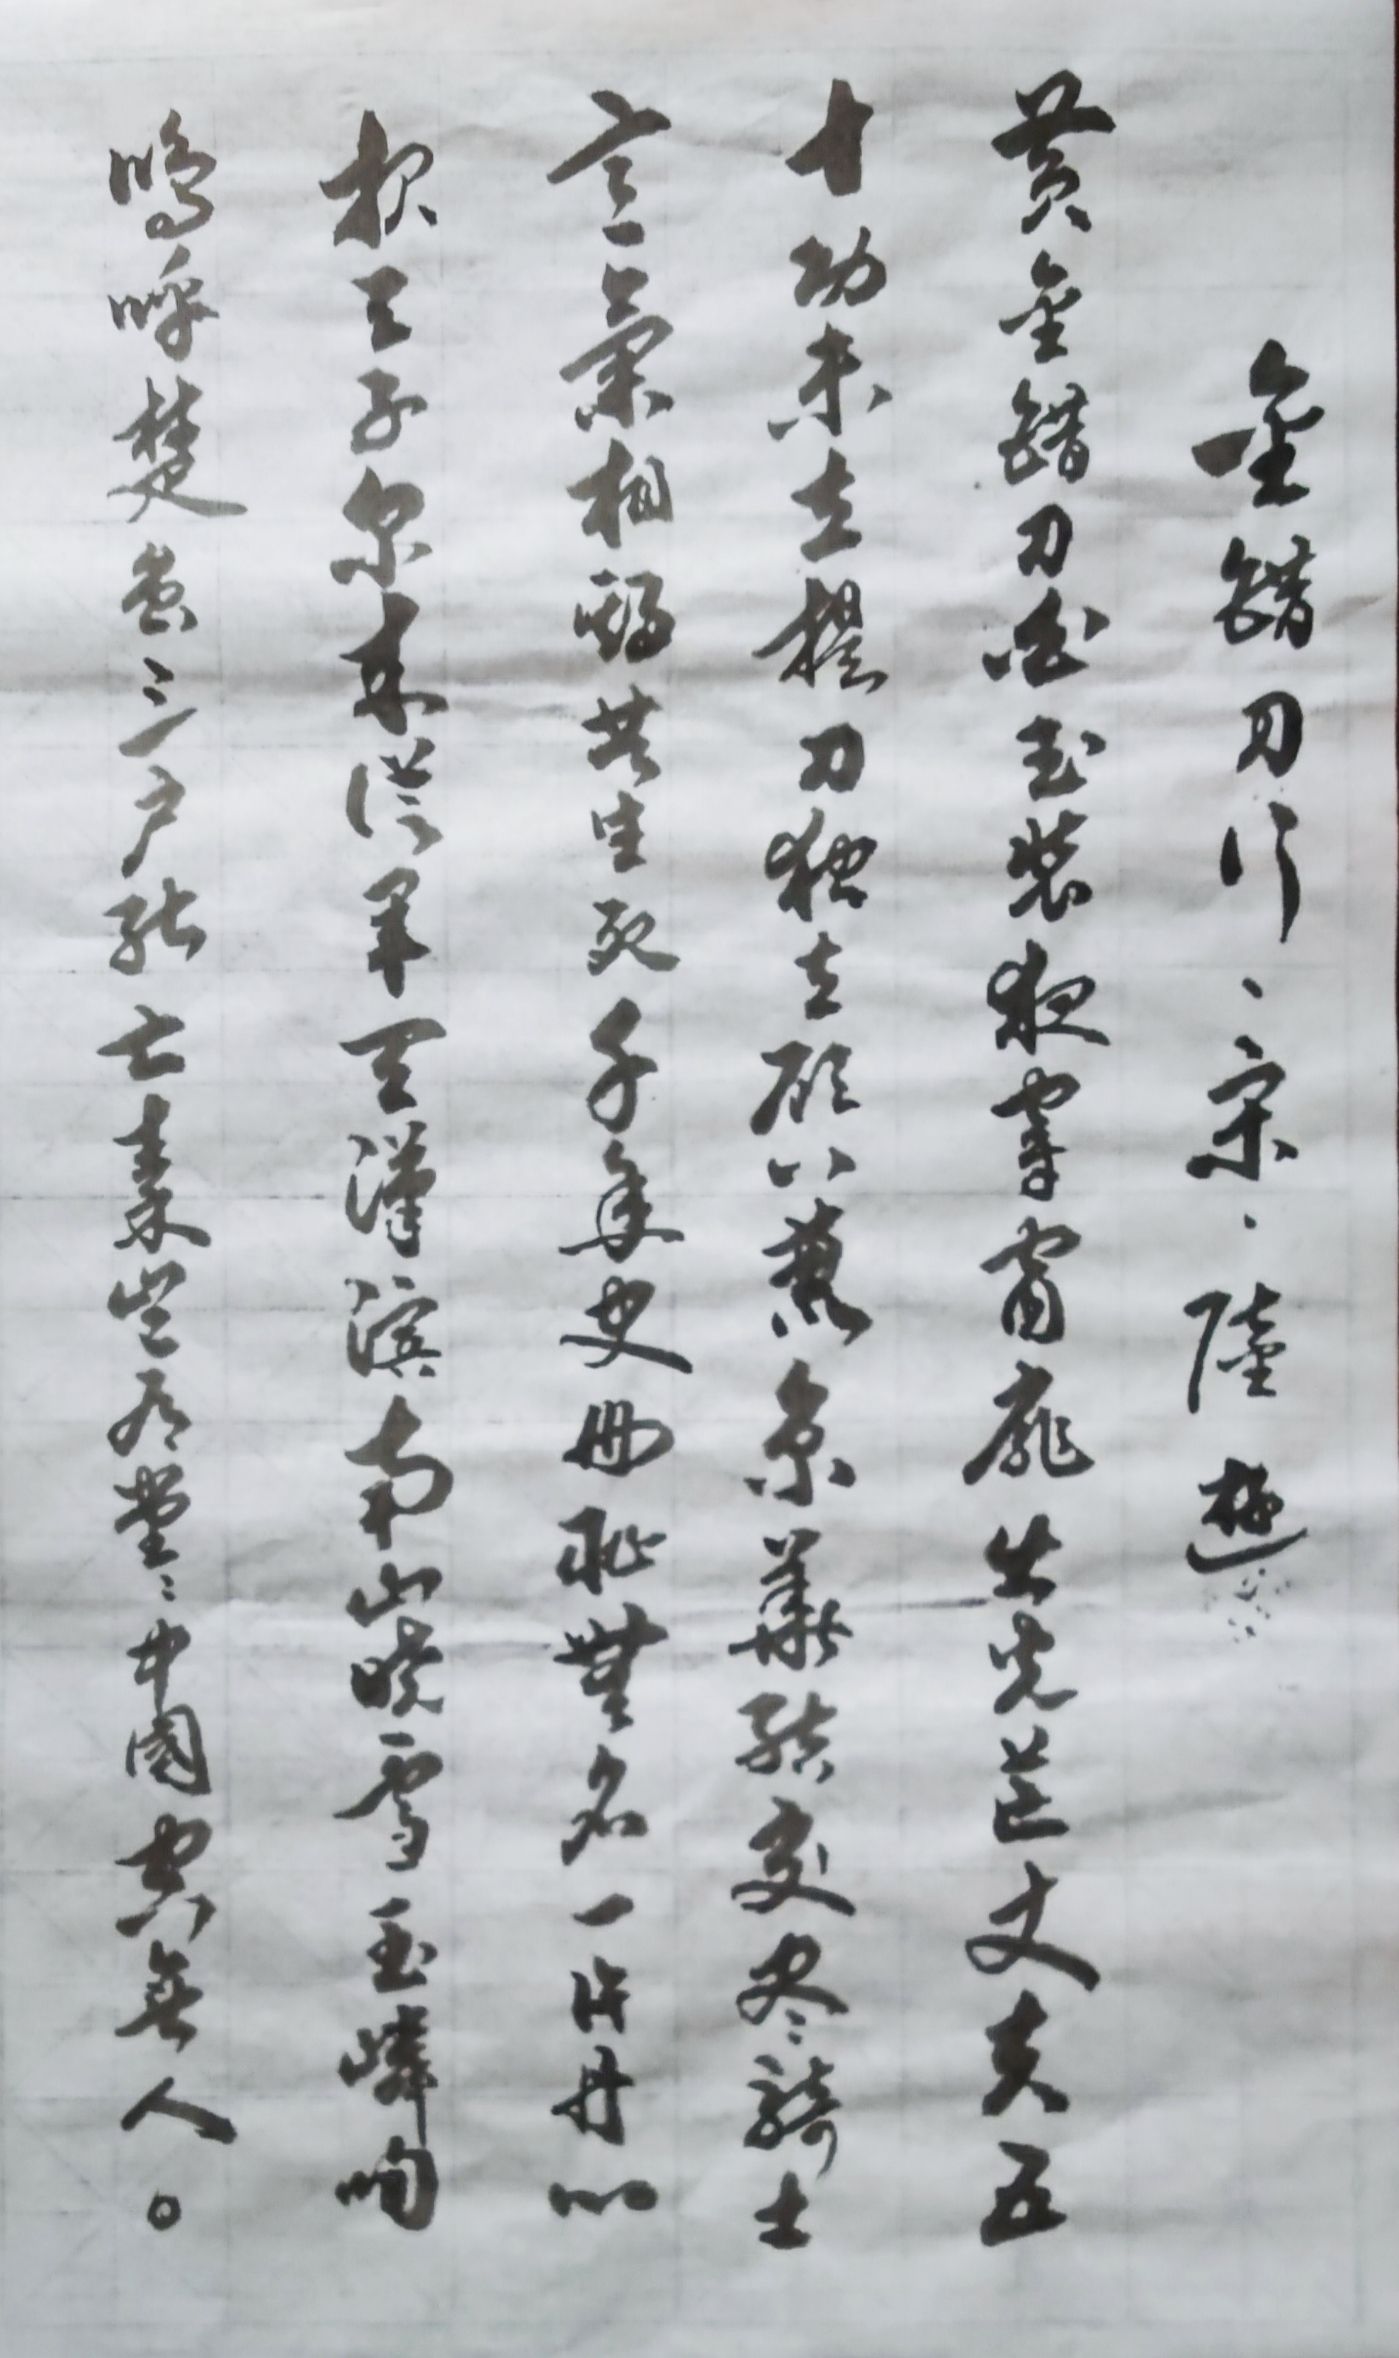 金錯刀行、宋·陸遊
黄金錯刀白玉装夜穿窗扉出光芒丈夫五
十功未立提刀独立顾八荒京華結交尽騎士
意氣相期共生死千年史册耻無名一片丹心
报天子尔来從军天漢滨南山晓雪玉嶙峋
嗚呼楚虽三户能亡秦岂有堂々中國空無人。